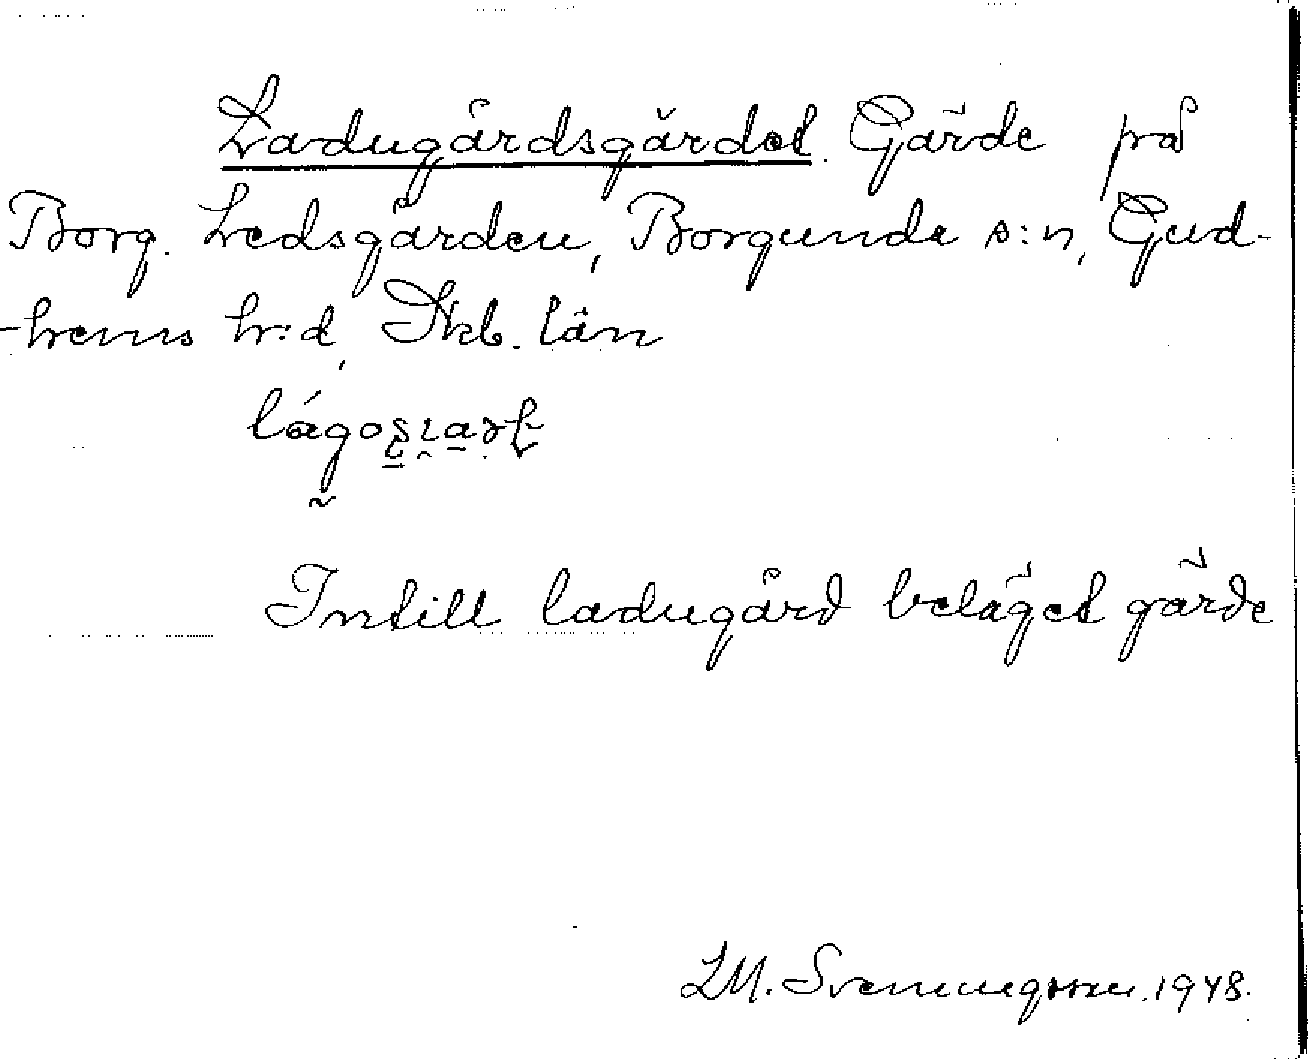 Ladugårdsgärdet. Gärde på
Borg. Ledsgården, Borgunda s:n, Gud-
-hems h:d, Skb. län
Intill ladugård beläget gärde
LM. Svenungsson. 1948.